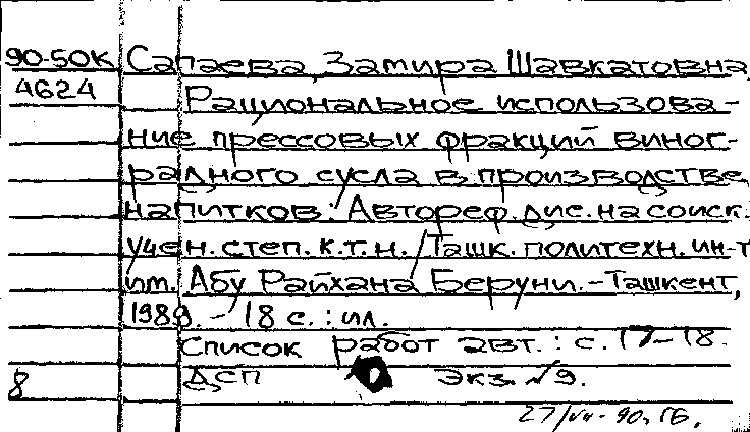 90-50К Сапаева, Замира Шавкатовна
4624 Рациональное использова-
ние прессовых фракций виног-
радного сусла в производстве
напитков: Автореф. дис. на соиск.
учен. степ. к.т.н. / Ташк. политехн. ин-т
им. Абу Райхана Беруни. - Ташкент,
1989. - 18 с. : ил.
Список работ авт. : с. 17-18.
8 ДСП Экз. №9.
27/VII-90. ГБ.